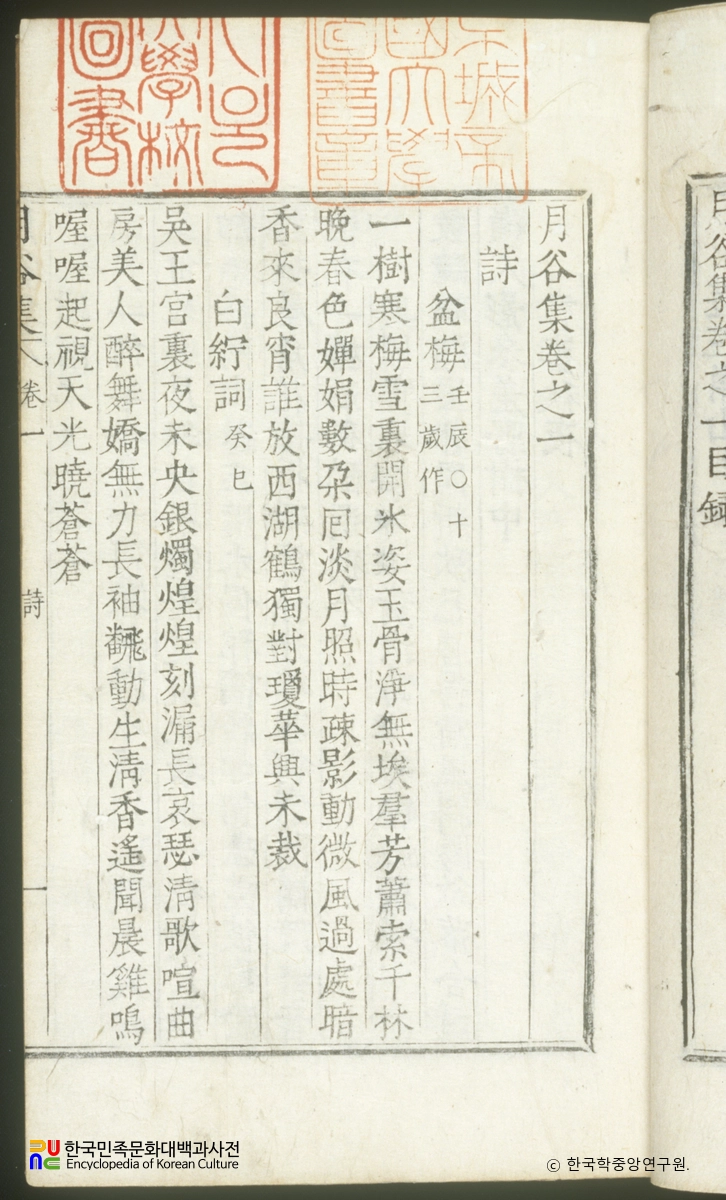 月谷集卷之一
詩
盆梅 壬辰○十三歲作
一樹寒梅雪裏開氷姿玉骨淨無埃羣芳蕭索千林
晩春色嬋娟數朶囘淡月照時疎影動微風過處暗
香來良宵誰放西湖鶴獨對瓊華興未裁
白紵詞 癸巳
吳王宮裏夜未央銀燭煌煌刻漏長哀瑟淸歌喧曲
房美人醉舞嬌無力長袖飜動生淸香遙聞晨雞鳴
喔喔起視天光曉蒼蒼
月谷集 卷一 詩 一
月谷集卷之一目錄
城帝國大學圖書章
學校圖書
한국민족문화대백과사전
Encyclopedia of Korean Culture
ⓒ 한국학중앙연구원.